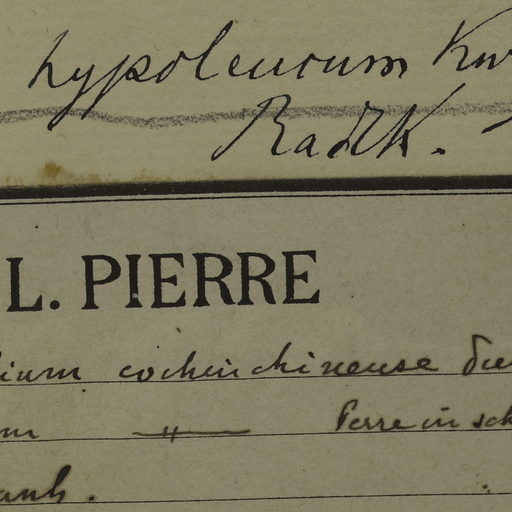 hypoleucum Kur
Radlk.
L. PIERRE
ium cochinchinense
um — " — Pierre in sch
anh.